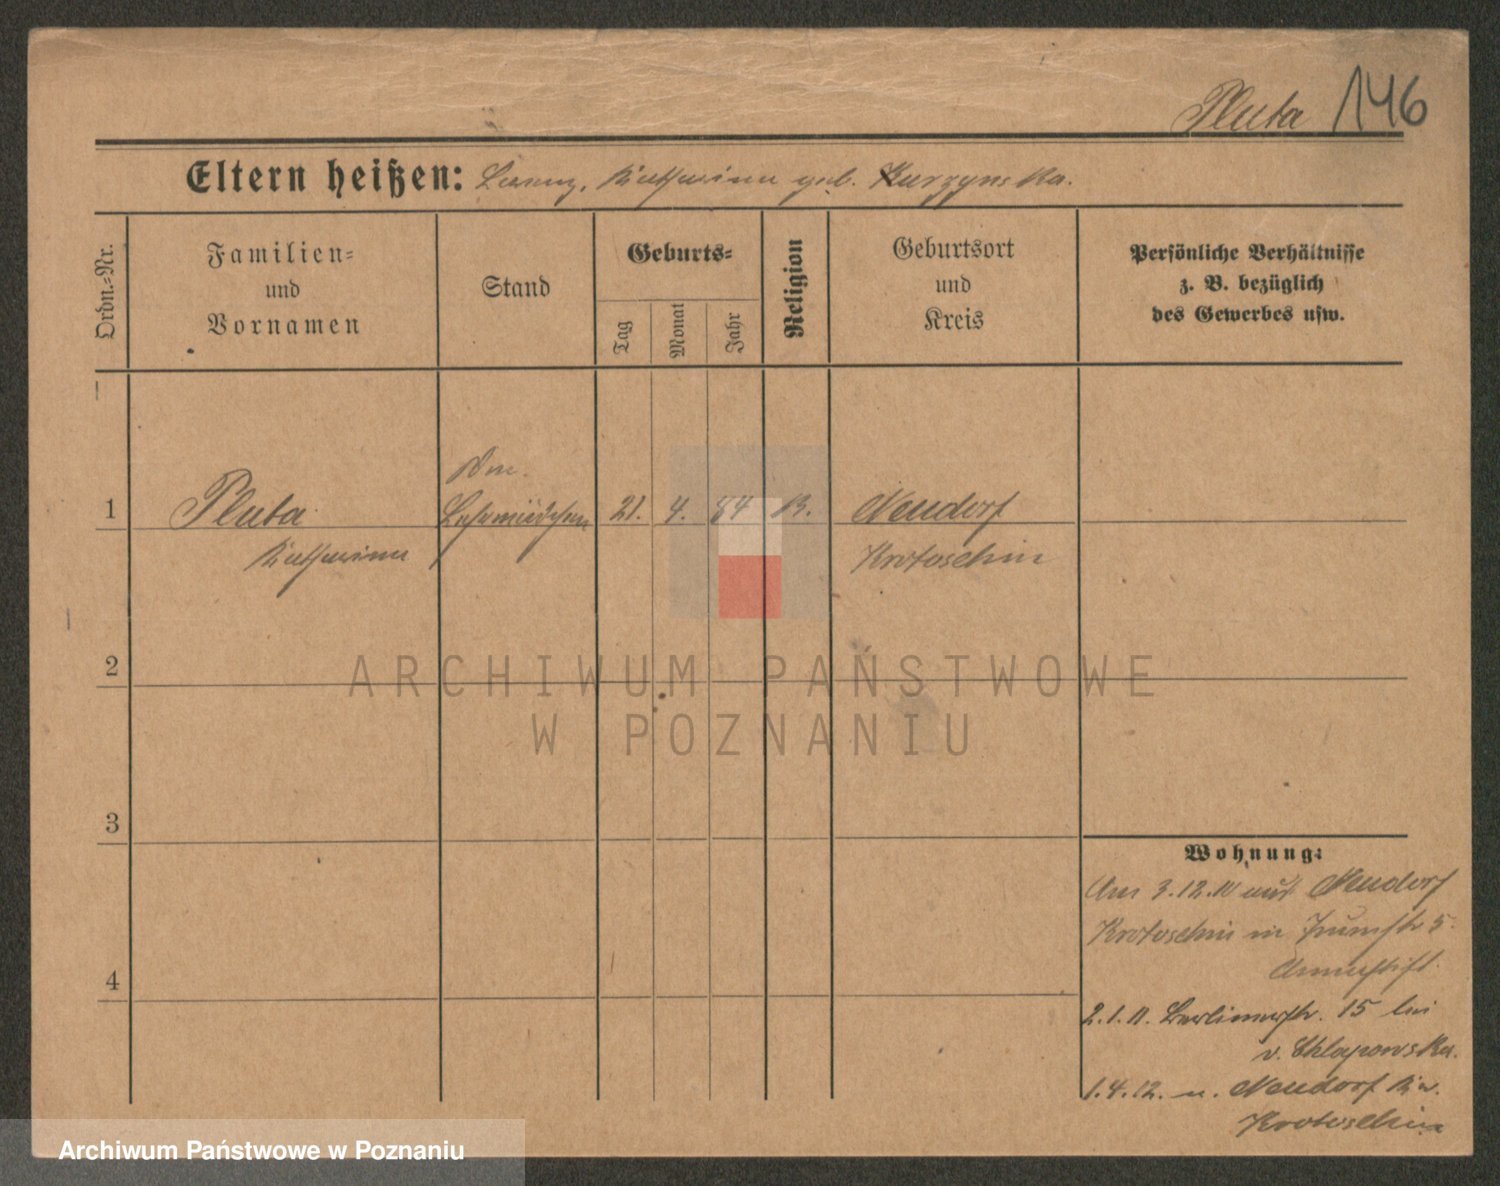 Pluta 146
Eltern heißen: Lorenz, Katharina geb. Kurzynska.
Ordn.-Nr.
Familien-
und
Vornamen
Stand
Geburts-
Tag
Monat
Jahr
Religion
Geburtsort
und
Kreis
Persönliche Verhältnisse
z. B. bezüglich
des Gewerbes usw.
1 Pluta Lehrmädchen 21. 4. 84 Neudorf
Katharina Krotoschin
2
3
4
Wohnung:
Am 3.12.10 aus Neudorf
Krotoschin in 5.
Annastift.
2.1.11. Berlinerstr. 15 bei
v. Chlapowska.
1.4.12. n. Neudorf Kr.
Krotoschin
ARCHIWUM PAŃSTWOWE
W POZNANIU
Archiwum Państwowe w Poznaniu